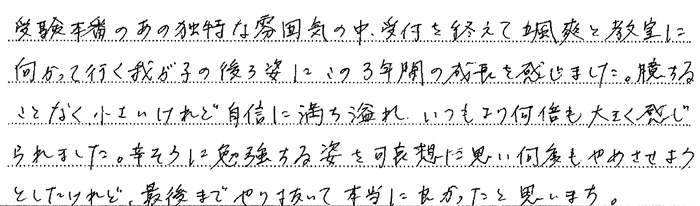 受験本番のあの独特な雰囲気の中、受付を終えて颯爽と教室に
向かって行く我が子の後ろ姿にこの3年間の成長を感じました。臆する
ことなく小さいけれど自信に満ち溢れ、いつもより何倍も大きく感じ
られました。辛そうに勉強する姿を可哀想に思い何度もやめさせよう
としたけれど、最後までやり抜いて本当に良かったと思います。